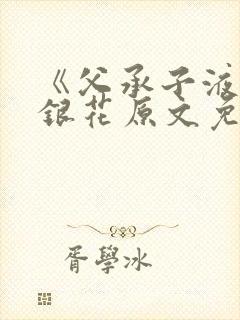 《父承子液
銀花原文免
胥學冰